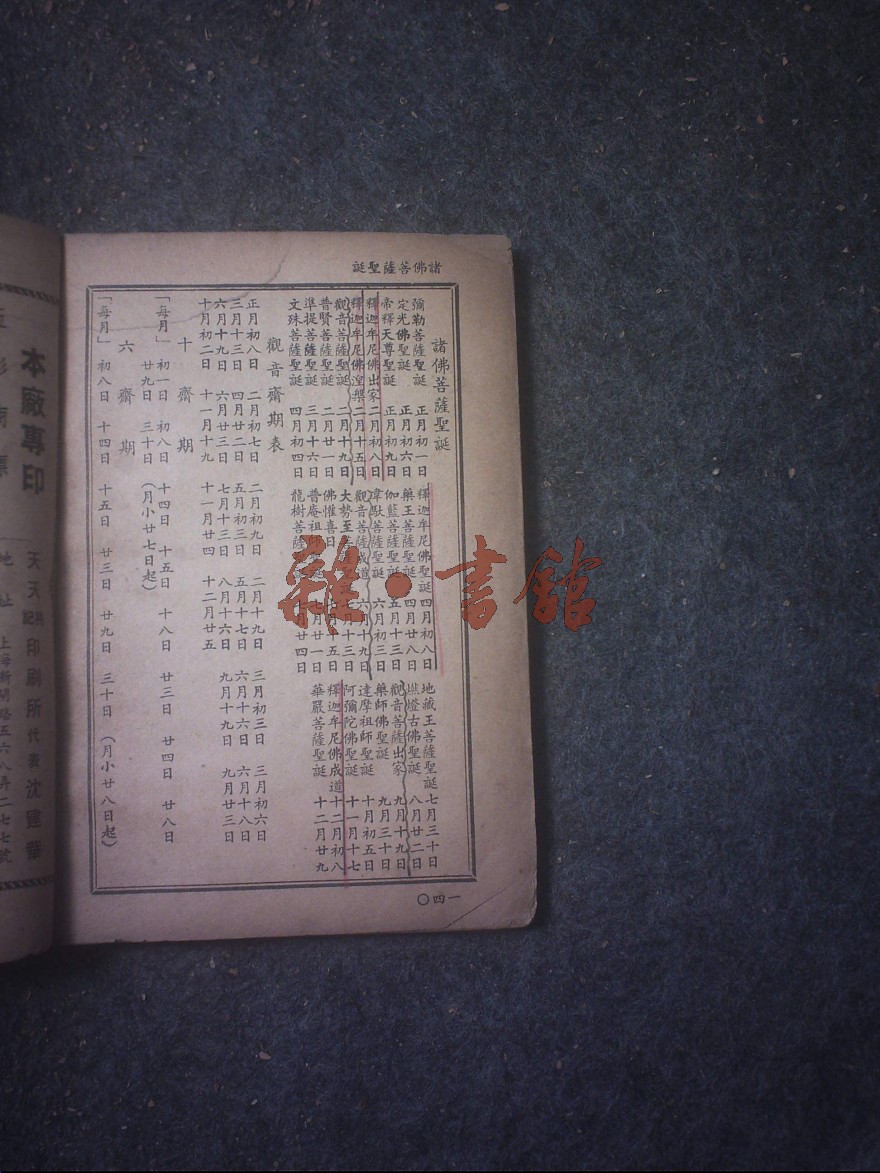 諸佛菩薩聖誕
諸佛菩薩聖誕
彌勒菩薩聖誕 正月初一日
定光佛聖誕 正月初六日
帝釋天尊聖誕 正月初九日
釋迦牟尼佛出家 二月初八日
釋迦牟尼佛涅槃 二月十五日
觀音菩薩聖誕 二月十九日
普賢菩薩聖誕 二月廿一日
準提菩薩聖誕 三月十六日
文殊菩薩聖誕 四月初四日
釋迦牟尼佛聖誕 四月初八日
藥王菩薩聖誕 四月廿八日
伽藍菩薩聖誕 五月十三日
韋馱菩薩聖誕 六月初三日
觀音菩薩成道 六月十九日
大勢至 十三日
佛惟喜日 十五日
普庵祖師 月廿一日
龍樹菩薩 月廿四日
地藏王菩薩聖誕 七月三十日
燃燈古佛聖誕 八月廿二日
觀音菩薩出家 九月十九日
藥師佛聖誕 九月三十日
達摩祖師聖誕 十月初五日
阿彌陀佛聖誕 十一月十七
釋迦牟尼佛成道 十二月初八
華嚴菩薩聖誕 十二月廿九
觀音齋期表
正月初八日 二月初七日 二月初九日 二月十九日 三月初三日 三月初六日
三月十三日 四月廿二日 五月初三日 五月十七日 六月十六日 六月十八日
六月十九日 六月廿三日 七月十三日 八月十六日 九月十九日 九月廿三日
十月初二日 十一月十九 十一月廿四 十二月廿五
十齋期
「每月」 初一日 初八日 十四日 十五日 十八日 廿三日 廿四日 廿八日
廿九日 三十日 (月小廿七日起)
六齋期
「每月」 初八日 十四日 十五日 廿三日 廿九日 三十日 (月小廿八日起)
一四〇
本廠專印
天天 記印刷所代表沈建華
地址 上海新閘路五六八弄二七七號
雜·書館